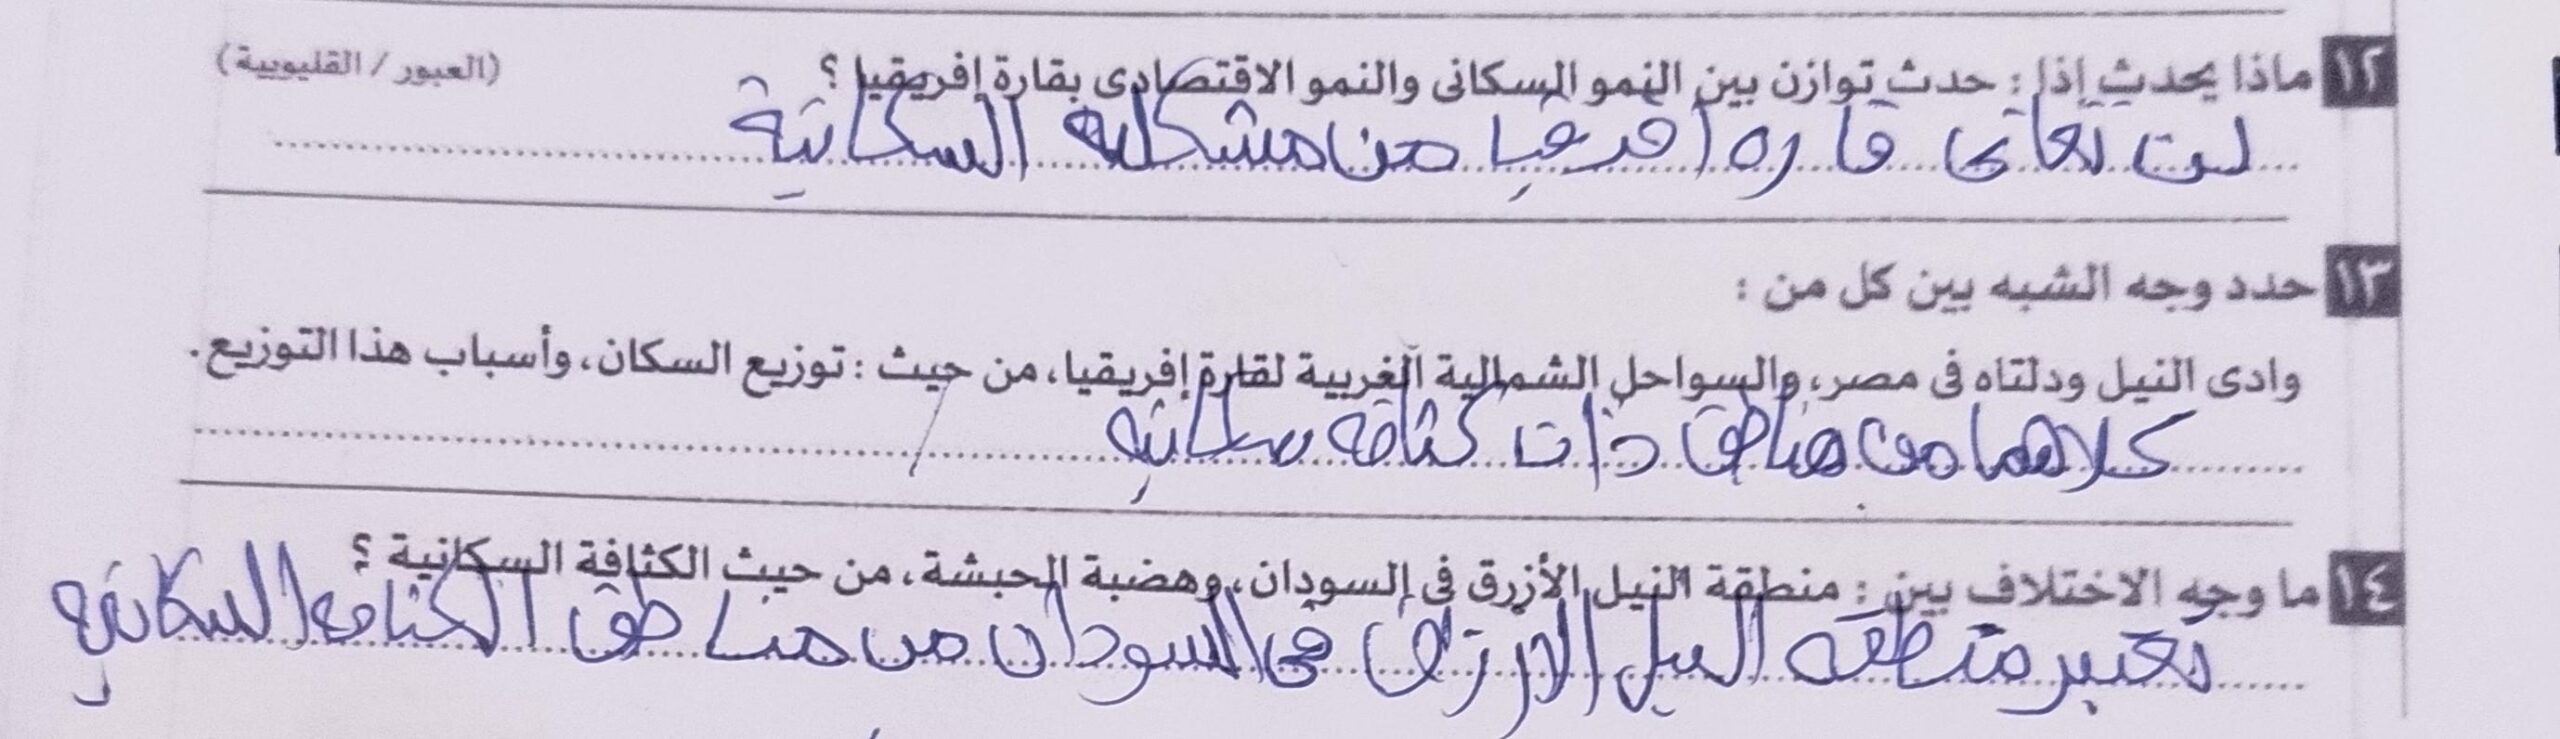 ١٢ ماذا يحدث إذا : حدث توازن بين النمو السكانى والنمو الاقتصادى بقارة إفريقيا ؟ (العبور / القليوبية)
لن تعانى قاره افريقيا من مشكله السكانية
١٣ حدد وجه الشبه بين كل من :
وادى النيل ودلتاه فى مصر، والسواحل الشمالية الغربية لقارة إفريقيا، من حيث : توزيع السكان، وأسباب هذا التوزيع.
كلاهما من مناطق ذات كثافه سكانيه
١٤ ما وجه الاختلاف بين : منطقة النيل الأزرق فى السودان، وهضبة الحبشة، من حيث الكثافة السكانية ؟
تعتبر منطقه النيل الازرق فى السودان من مناطق الكثافه السكانيه